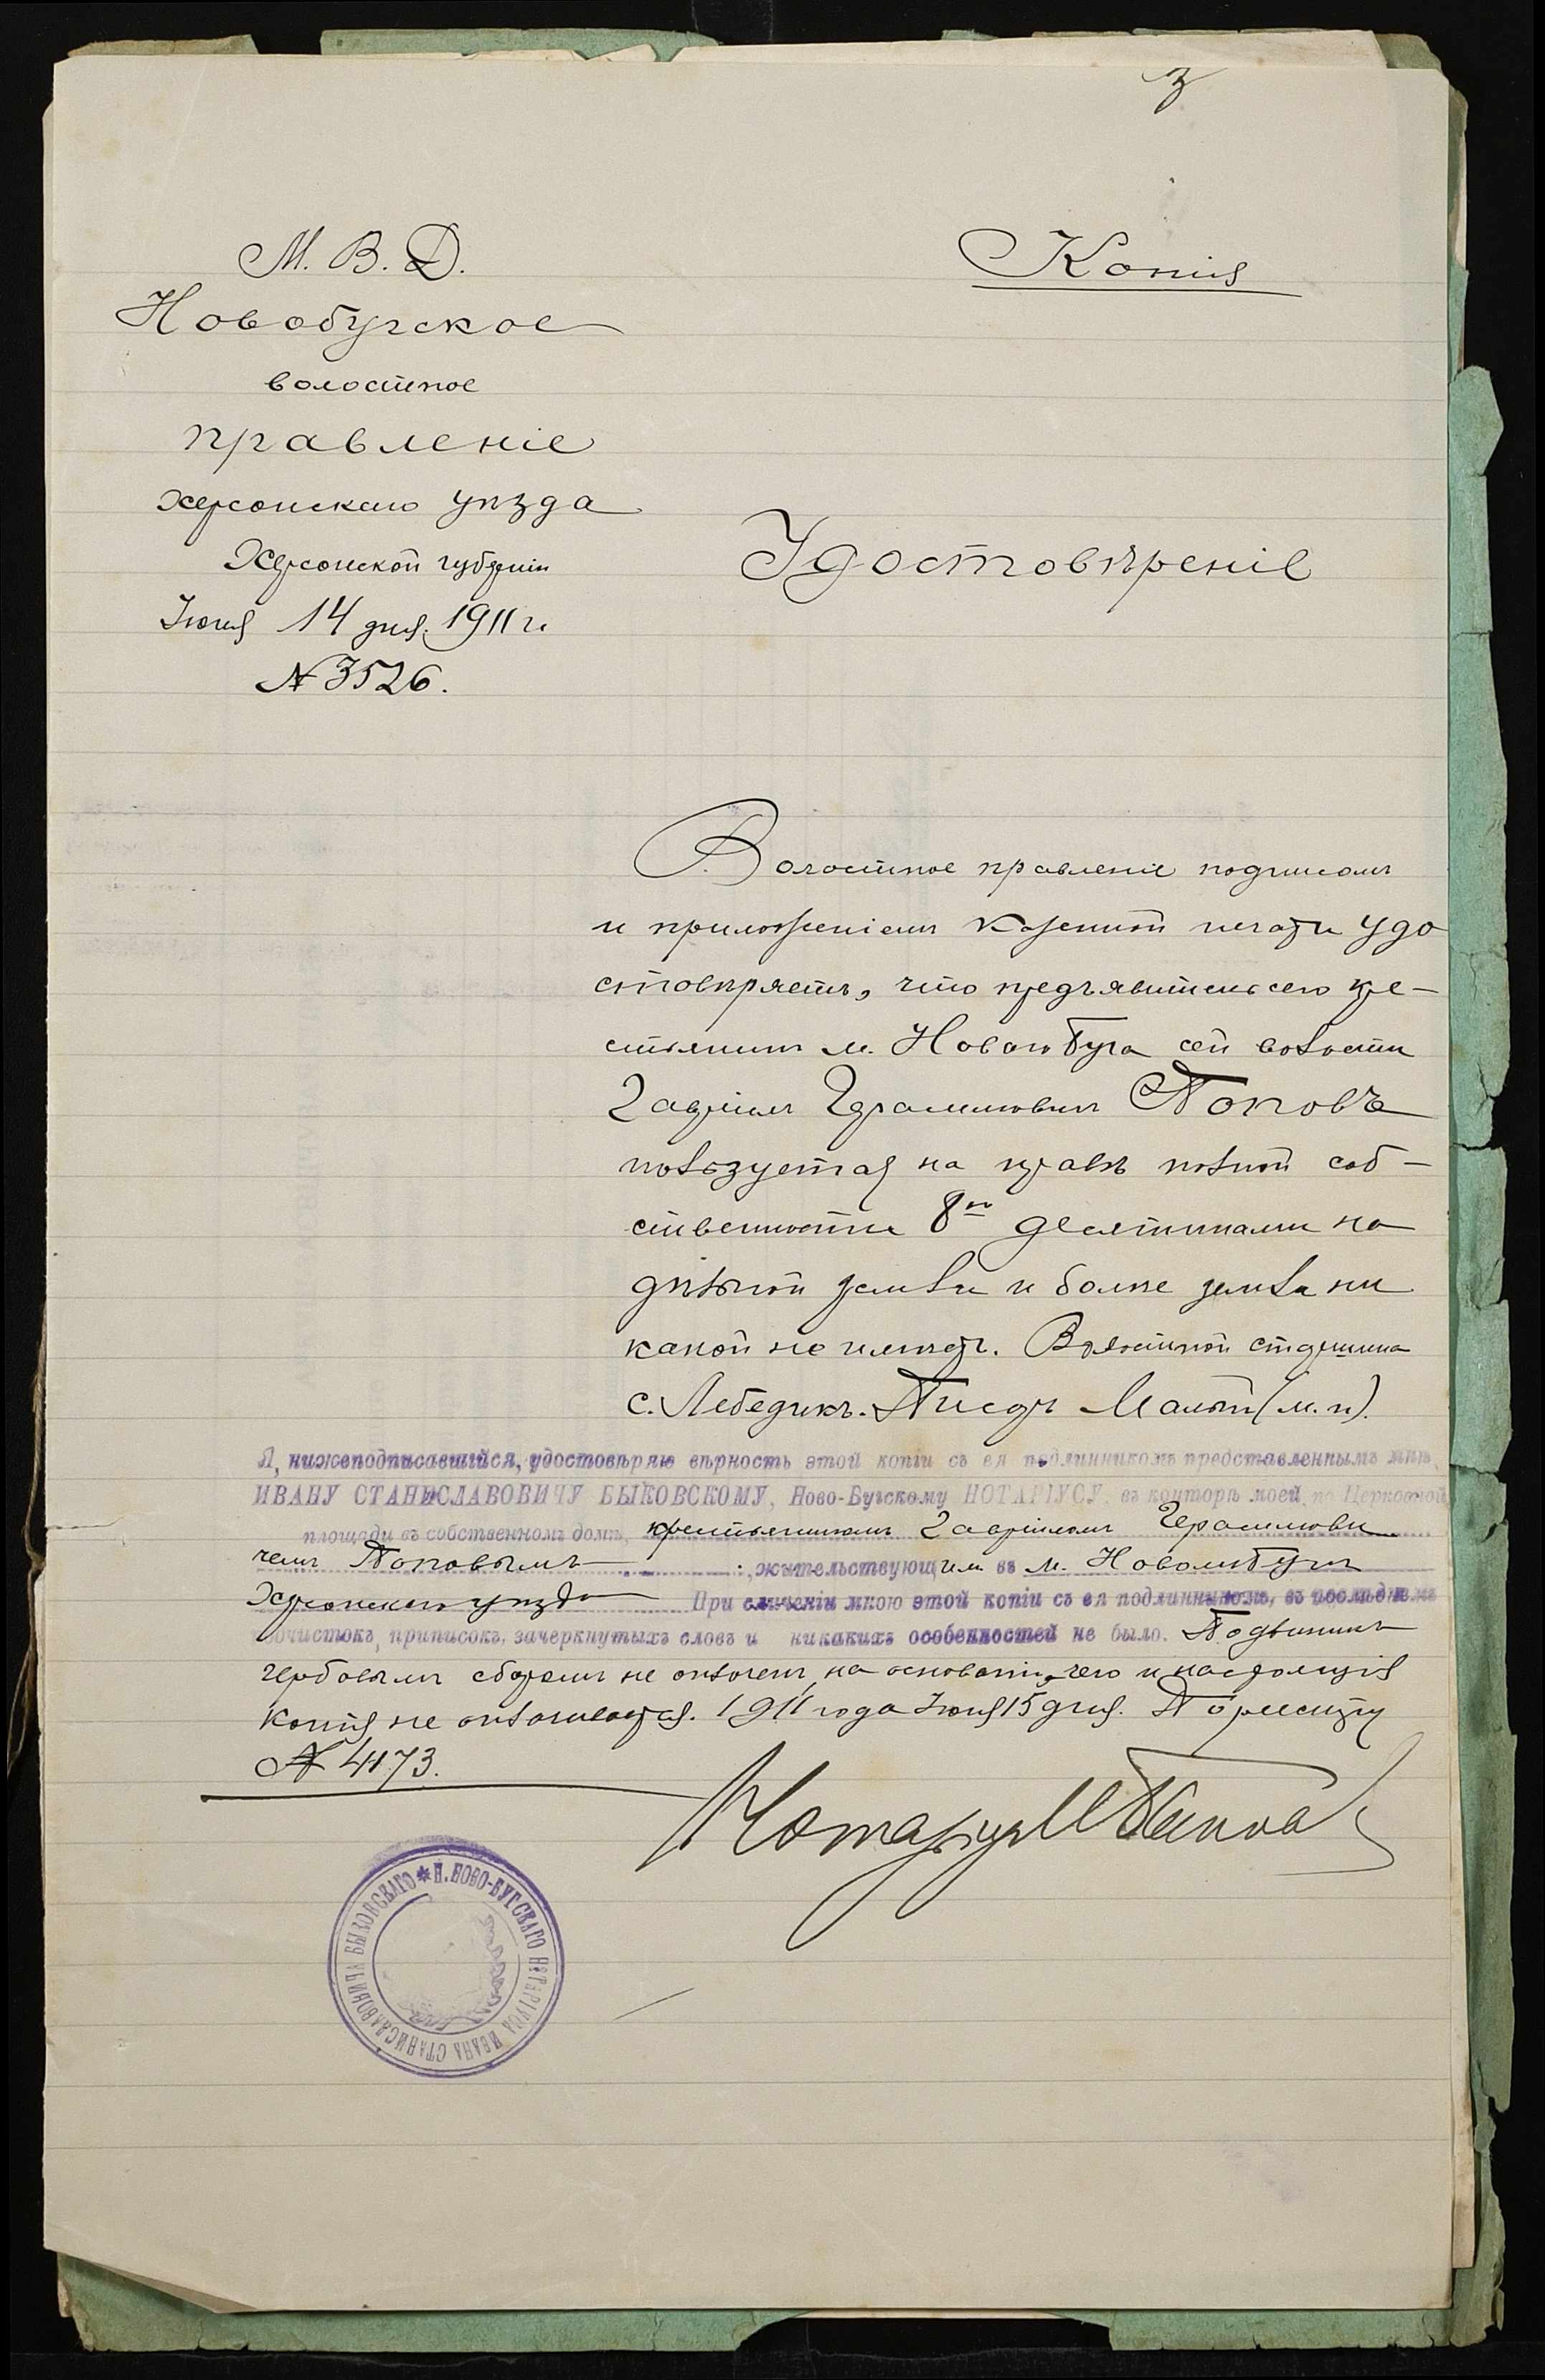 З
М. В. Д.
Новобугское
волостное
правленіе
Херсонскаго уѣзда
Херсонской губерніи
Іюня 14 дня 1911 г.
№ 3526.
Копія
Удостовѣреніе
Волостное правленіе подписомъ
и приложеніемъ казенной печати удо
стовѣряетъ, что предъявитель сего кре-
стьянинъ м. Новаго Буга сей волости
Гавріилъ Герасимовичъ Поповъ
пользуется на правѣ полной соб-
ственности 8ю десятинами на
дѣльной земли и более земли ни
какой не имѣетъ. Волостной старшина
с. Лебедикъ. Писарь Малый (м.п).
Я, нижеподписавшійся, удостовѣряю вѣрность этой копіи съ ея подлинникомъ представленнымъ мнѣ,
ИВАНУ СТАНИСЛАВОВИЧУ БЫКОВСКОМУ, Ново-Бугскому НОТАРІУСУ, въ конторѣ моей, по Церковной
площади въ собственномъ домѣ, крестьяниномъ Гавріиломъ Герасимови
чемъ Поповымъ жительствующимъ въ м. Новомъ Бугѣ
Херсонскаго уѣзда При сличеніи мною этой копіи съ ея подлинникомъ, въ послѣднемъ
почистокъ, приписокъ, зачеркнутыхъ словъ и никакихъ особенностей не было. Подлинникъ
гербовымъ сборомъ не оплоченъ, на основаніи чего и настоящія
копія не оплочивается. 1911 года Іюня 15 дня. По реестру
№ 4173.
Нотаріусъ И Быков
* Н. НОВО-БУГСКАГО НОТАРІУСА ИВАНА СТАНИСЛАВОВИЧА БЫКОВСКАГО